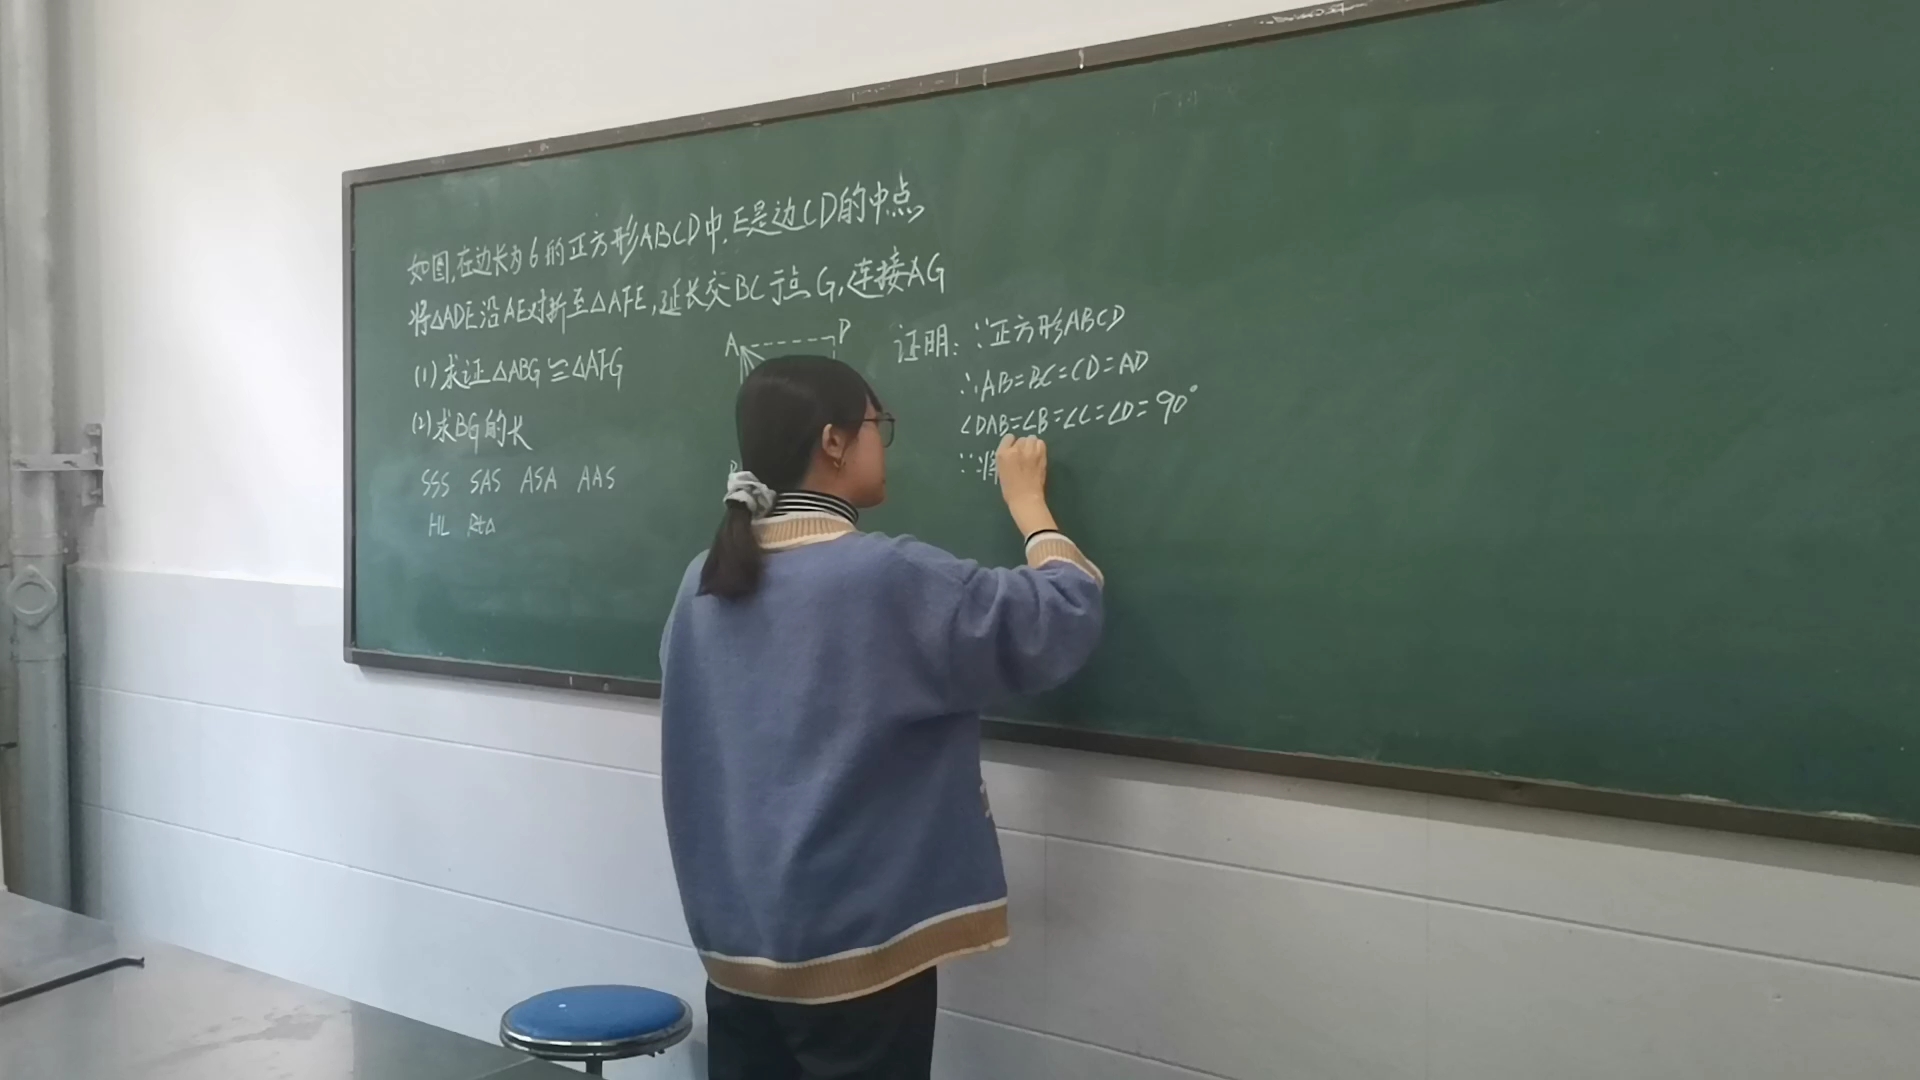 如图,在边长为6的正方形ABCD中,E是边CD的中点
将△ADE沿AE对折至△AFE,延长交BC于点G,连接AG
(1)求证△ABG≌△AFG
(2)求BG的长
SSS SAS ASA AAS
HL Rt△
A D
B
证明:∵正方形ABCD
∴AB=BC=CD=AD
∠DAB=∠B=∠C=∠D=90°
∵将